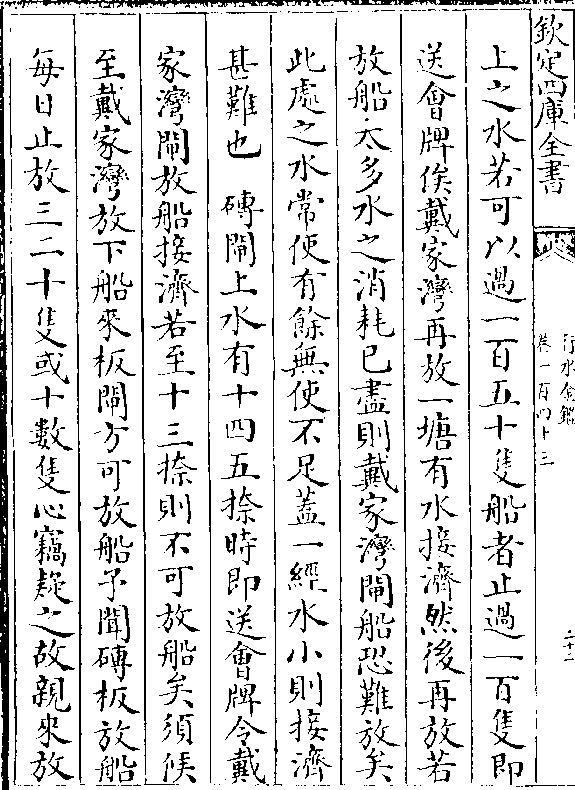 欽定四庫全書
行水金鑑
卷一百四十三
二十二
上之水若可以過一百五十隻船者止過一百隻即
送會牌俟戴家灣再放一塘有水接濟然後再放若
放船太多水之消耗已盡則戴家灣閘船恐難放矣
此處之水常使有餘無使不足蓋一經水小則接濟
甚難也　磚閘上水有十四五捺時即送會牌令戴
家灣閘放船接濟若至十三捺則不可放船矣須候
至戴家灣放下船來板閘方可放船予聞磚板放船
每日止放三二十隻或十數隻心竊疑之故親來放